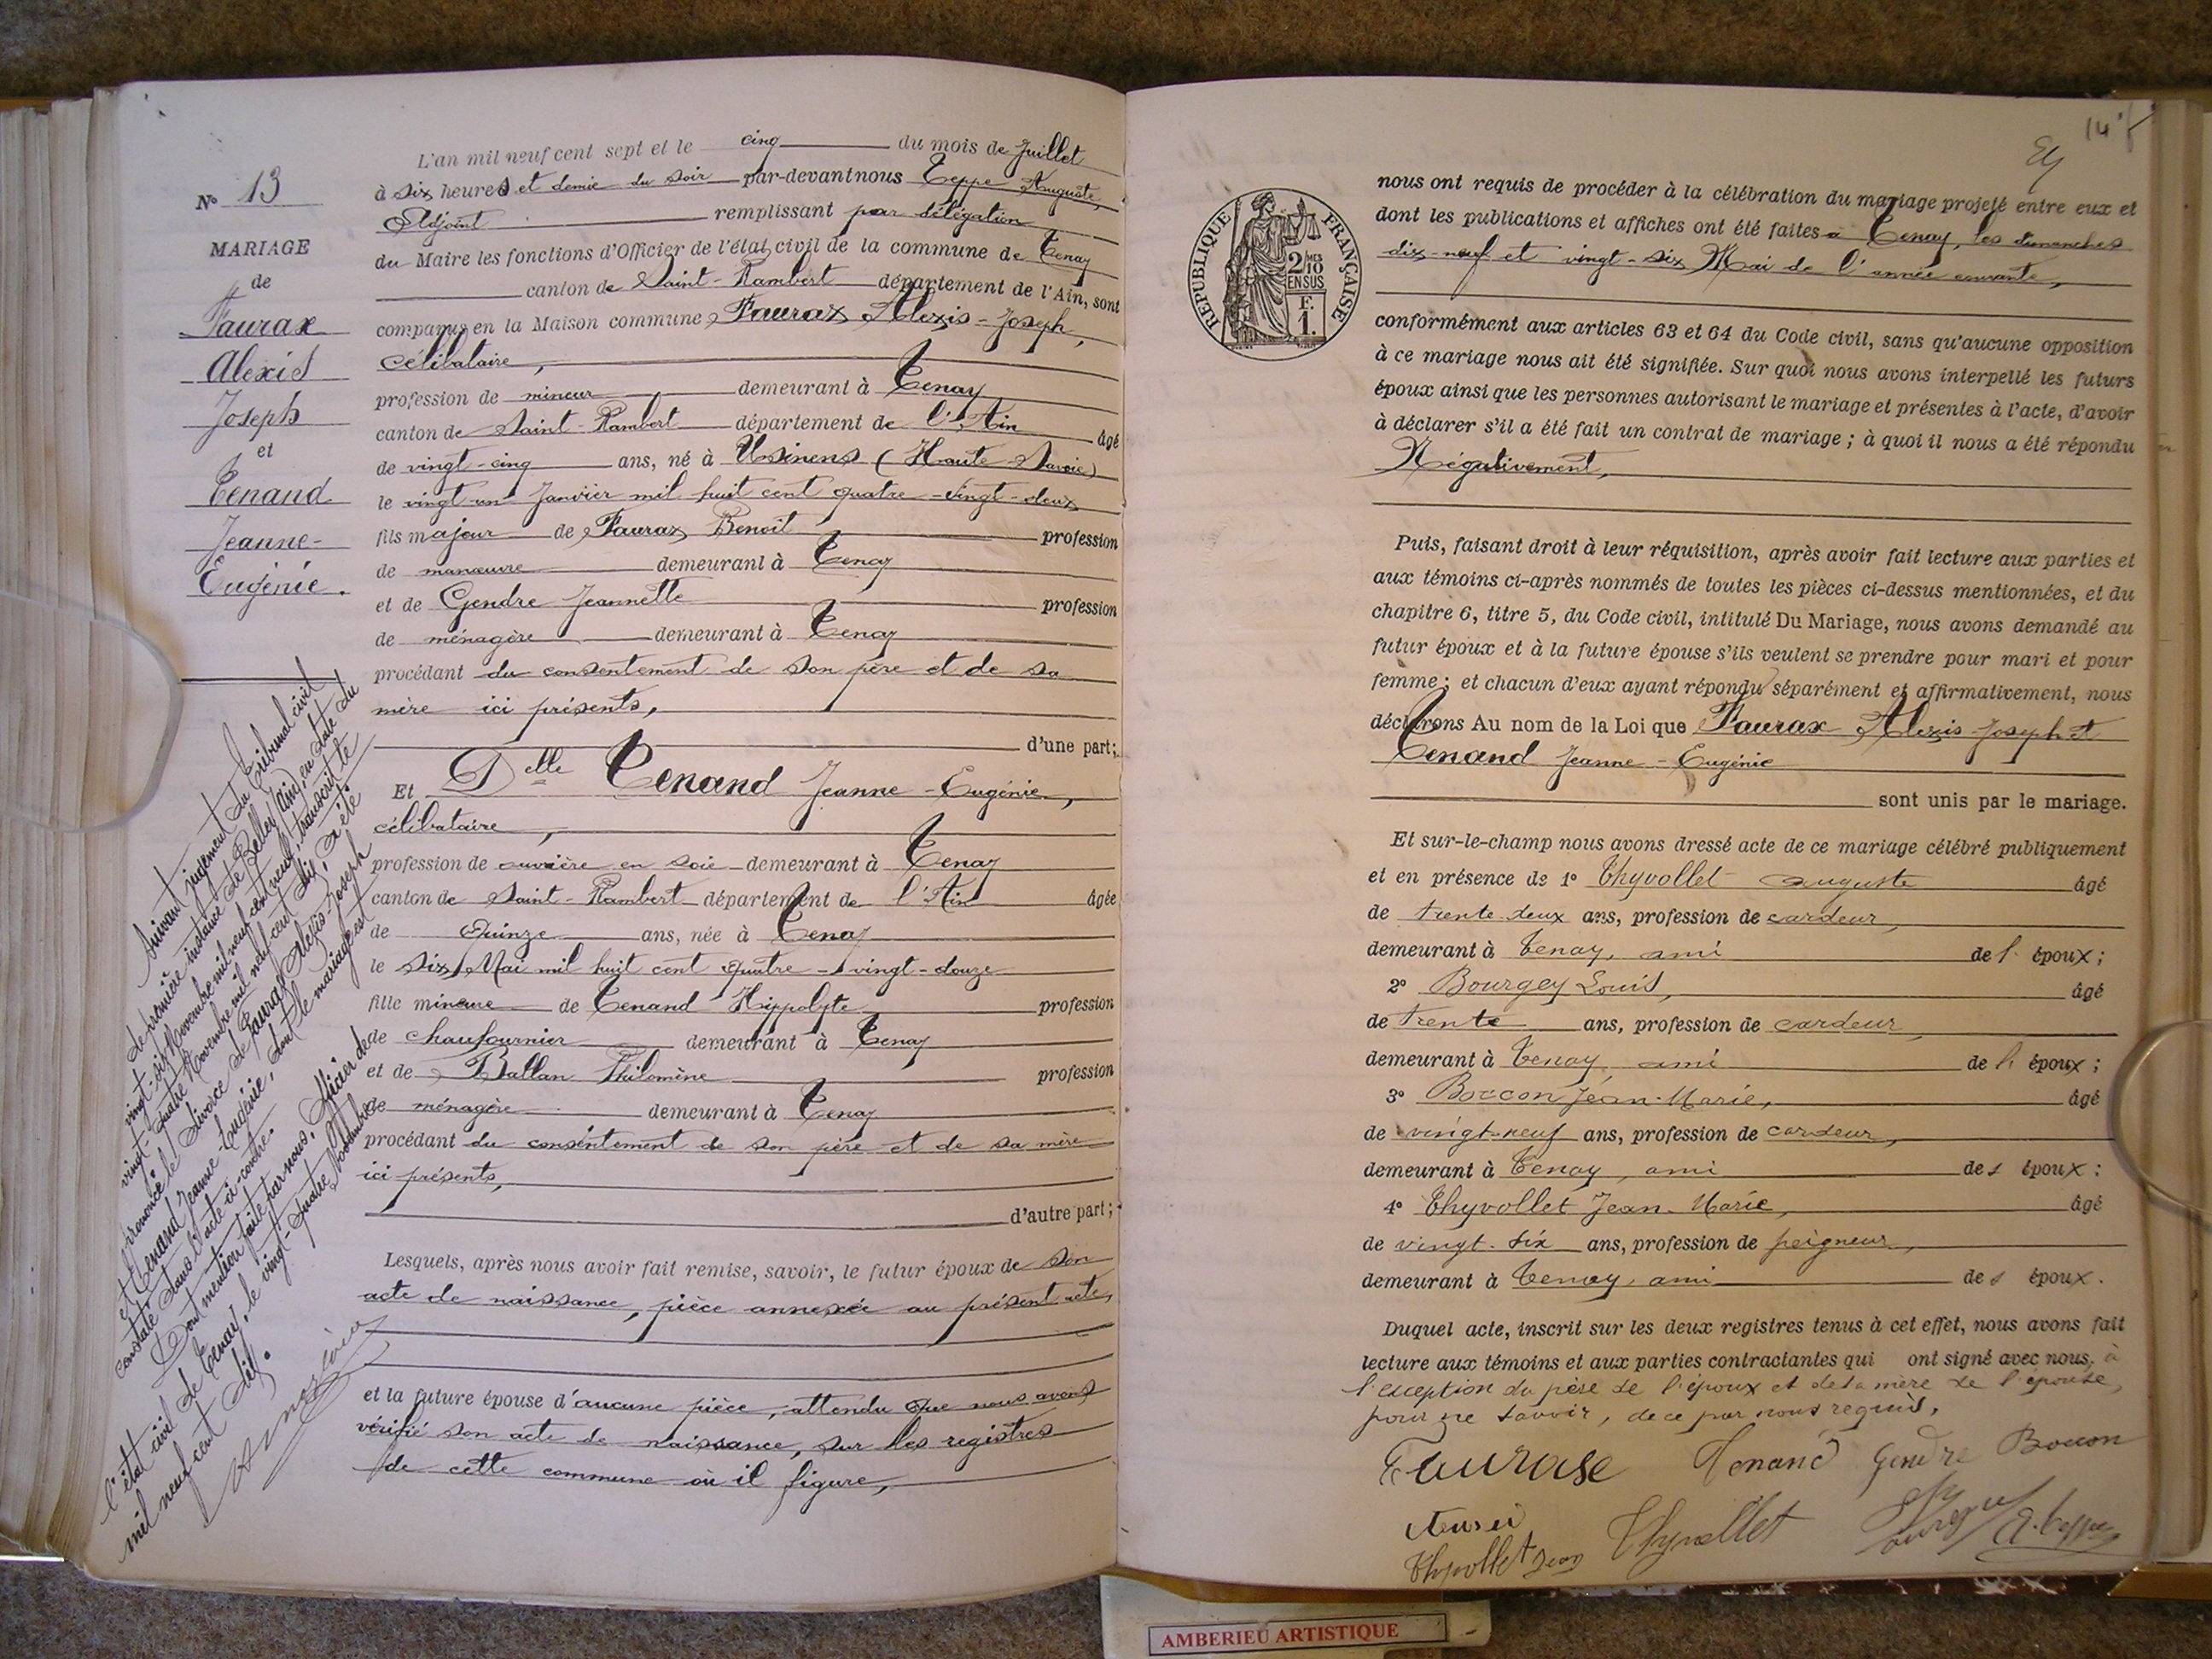 L'an mil neuf cent sept et le cinq du mois de Juillet
à six heures et demie du soir par-devant nous Teppe Auguste,
Adjoint remplissant par délégation
du Maire les fonctions d'Officier de l'état civil de la commune de Tenay
canton de Saint-Rambert département de l'Ain, sont
comparus en la Maison commune, Faurax Alexis-Joseph,
célibataire,
profession de mineur demeurant à Tenay
canton de Saint-Rambert département de l'Ain âgé
de vingt-cinq ans, né à Usinens (Haute-Savoie)
le vingt-un Janvier mil huit cent quatre-vingt-deux
fils majeur de Faurax Benoît profession
de manœuvre demeurant à Tenay
et de Gendre Jeannette profession
de ménagère demeurant à Tenay
procédant du consentement de son père et de sa
mère ici présents,
d'une part;
Et Delle Tenand Jeanne-Eugénie,
célibataire,
profession de ouvrière en soie demeurant à Tenay
canton de Saint-Rambert département de l'Ain âgée
de Quinze ans, née à Tenay
le six Mai mil huit cent quatre-vingt-douze
fille mineure de Tenand Hippolyte profession
de chaufournier demeurant à Tenay
et de Ballan Philomène profession
de ménagère demeurant à Tenay
procédant du consentement de son père et de sa mère
ici présents,
d'autre part;
Lesquels, après nous avoir fait remise, savoir, le futur époux de son
acte de naissance, pièce annexée au présent acte,
et la future épouse d'aucune pièce, attendu que nous avons
vérifié son acte de naissance, sur les registres
de cette commune où il figure,
N° 13
MARIAGE
de
Faurax
Alexis
Joseph
et
Tenand
Jeanne-
Eugénie.
Suivant jugement du Tribunal civil
de première instance de Belley (Ain) en date du
vingt-six Novembre mil neuf cent neuf, transcrit le
vingt-quatre Novembre mil neuf cent dix, a été
prononcé le divorce de Faurax Alexis-Joseph
et Tenand Jeanne-Eugénie, dont le mariage est
constaté dans l'acte ci-contre.
Dont mention faite par nous, Officier de
l'état civil de Tenay, le vingt-quatre Novembre
mil neuf cent dix.
145
RÉPUBLIQUE FRANÇAISE
2/MES
10
EN SUS
F.
1.
nous ont requis de procéder à la célébration du mariage projeté entre eux et
dont les publications et affiches ont été faites à Tenay, les dimanches
dix-neuf et vingt-six Mai de l'année courante,
conformément aux articles 63 et 64 du Code civil, sans qu'aucune opposition
à ce mariage nous ait été signifiée. Sur quoi nous avons interpellé les futurs
époux ainsi que les personnes autorisant le mariage et présentes à l'acte, d'avoir
à déclarer s'il a été fait un contrat de mariage ; à quoi il nous a été répondu
Négativement,
Puis, faisant droit à leur réquisition, après avoir fait lecture aux parties et
aux témoins ci-après nommés de toutes les pièces ci-dessus mentionnées, et du
chapitre 6, titre 5, du Code civil, intitulé Du Mariage, nous avons demandé au
futur époux et à la future épouse s'ils veulent se prendre pour mari et pour
femme; et chacun d'eux ayant répondu séparément et affirmativement, nous
déclarons Au nom de la Loi que Faurax Alexis-Joseph et
Tenand Jeanne-Eugénie
sont unis par le mariage.
Et sur-le-champ nous avons dressé acte de ce mariage célébré publiquement
et en présence de 1° Thyvollet Auguste âgé
de trente deux ans, profession de cardeur,
demeurant à Tenay, ami de l' époux;
2° Bourgey Louis, âgé
de trente ans, profession de cardeur,
demeurant à Tenay, ami de l' époux;
3° Boccon Jean-Marie, âgé
de vingt-neuf ans, profession de cardeur,
demeurant à Tenay, ami des époux:
4° Thyvollet Jean-Marie, âgé
de vingt-six ans, profession de peigneur,
demeurant à Tenay, ami des époux.
Duquel acte, inscrit sur les deux registres tenus à cet effet, nous avons fait
lecture aux témoins et aux parties contractantes qui ont signé avec nous, à
l'exception du père de l'époux et de la mère de l'épouse,
pour ne savoir, de ce par nous requis,
Faurax Tenand Gendre Boccon
Thyvollet Jean Thyvollet A. Teppe
AMBERIEU ARTISTIQUE